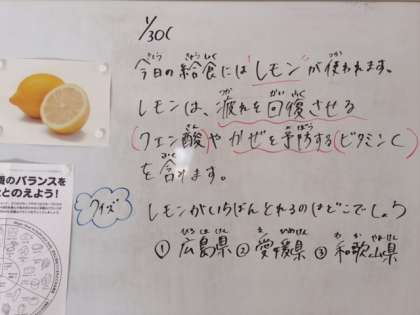 1/30(
今日の給食には「レモン」が使われます。
レモンは、疲れを回復させる
(クエン酸)や かぜを予防する(ビタミンC)
を含みます。
クイズ
レモンがいちばんとれるのはどこでしょう
① 広島県 ② 愛媛県 ③ 和歌山県
のバランスを
ととのえよう!